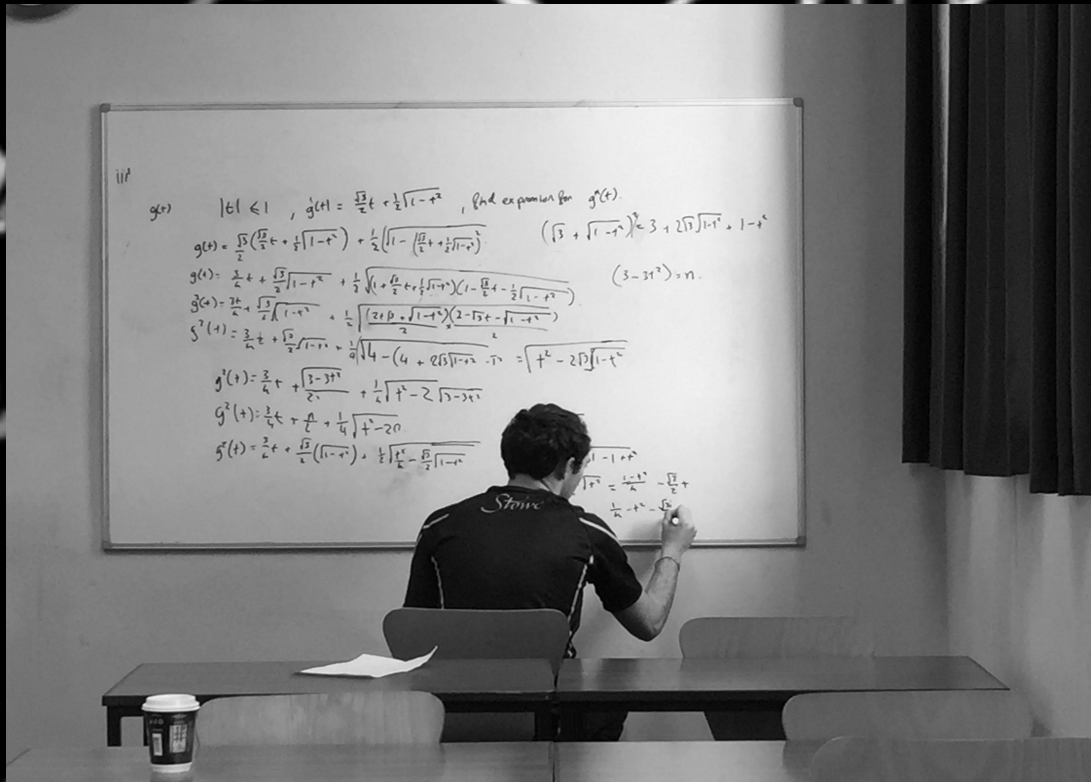 iii)
g(t) |t| ⩽ 1 , g'(t) = √3/2 t + 1/2 √(1-t²) , find expression for gⁿ(t).
g(t) = √3/2 (√3/2 t + 1/2 √(1-t²)) + 1/2 (√(1 - (√3/2 t + 1/2 √(1-t²))²
(√3 + √(1-t²))² = 3 + 2√3 √(1-t²) + 1-t²
g(t) = 3/4 t + √3/2 √(1-t²) + 1/2 √((1 + √3/2 t + 1/2 √(1-t²))(1 - √3/2 t - 1/2 √(1-t²))
(3-3t²) = n.
g²(t) = 3t/4 + √3/2 √(1-t²) + 1/2 √((2+√3 + √(1-t²))/2 × (2-√3t - √(1-t²))/2)
g²(t) = 3/4 t + √3/2 √(1-t²) + 1/4 √(4 - (4 + 2√3 √(1-t²) - t² = √(t² - 2√3 √(1-t²))
g²(t) = 3/4 t + √(3-3t²)/2 + 1/4 √(t² - 2√(3-3t²))
g²(t) = 3/4 t + n/2 + 1/4 √(t²-2n)
g²(t) = 3/4 t + √3/2 (√(1-t²)) + 1/2 √(t²/4 - √3/2 √(1-t²))
1 - 1 + t²
√t² = (1-t²)/4 - √3/2 t
1/4 - t² - √3
Stowe